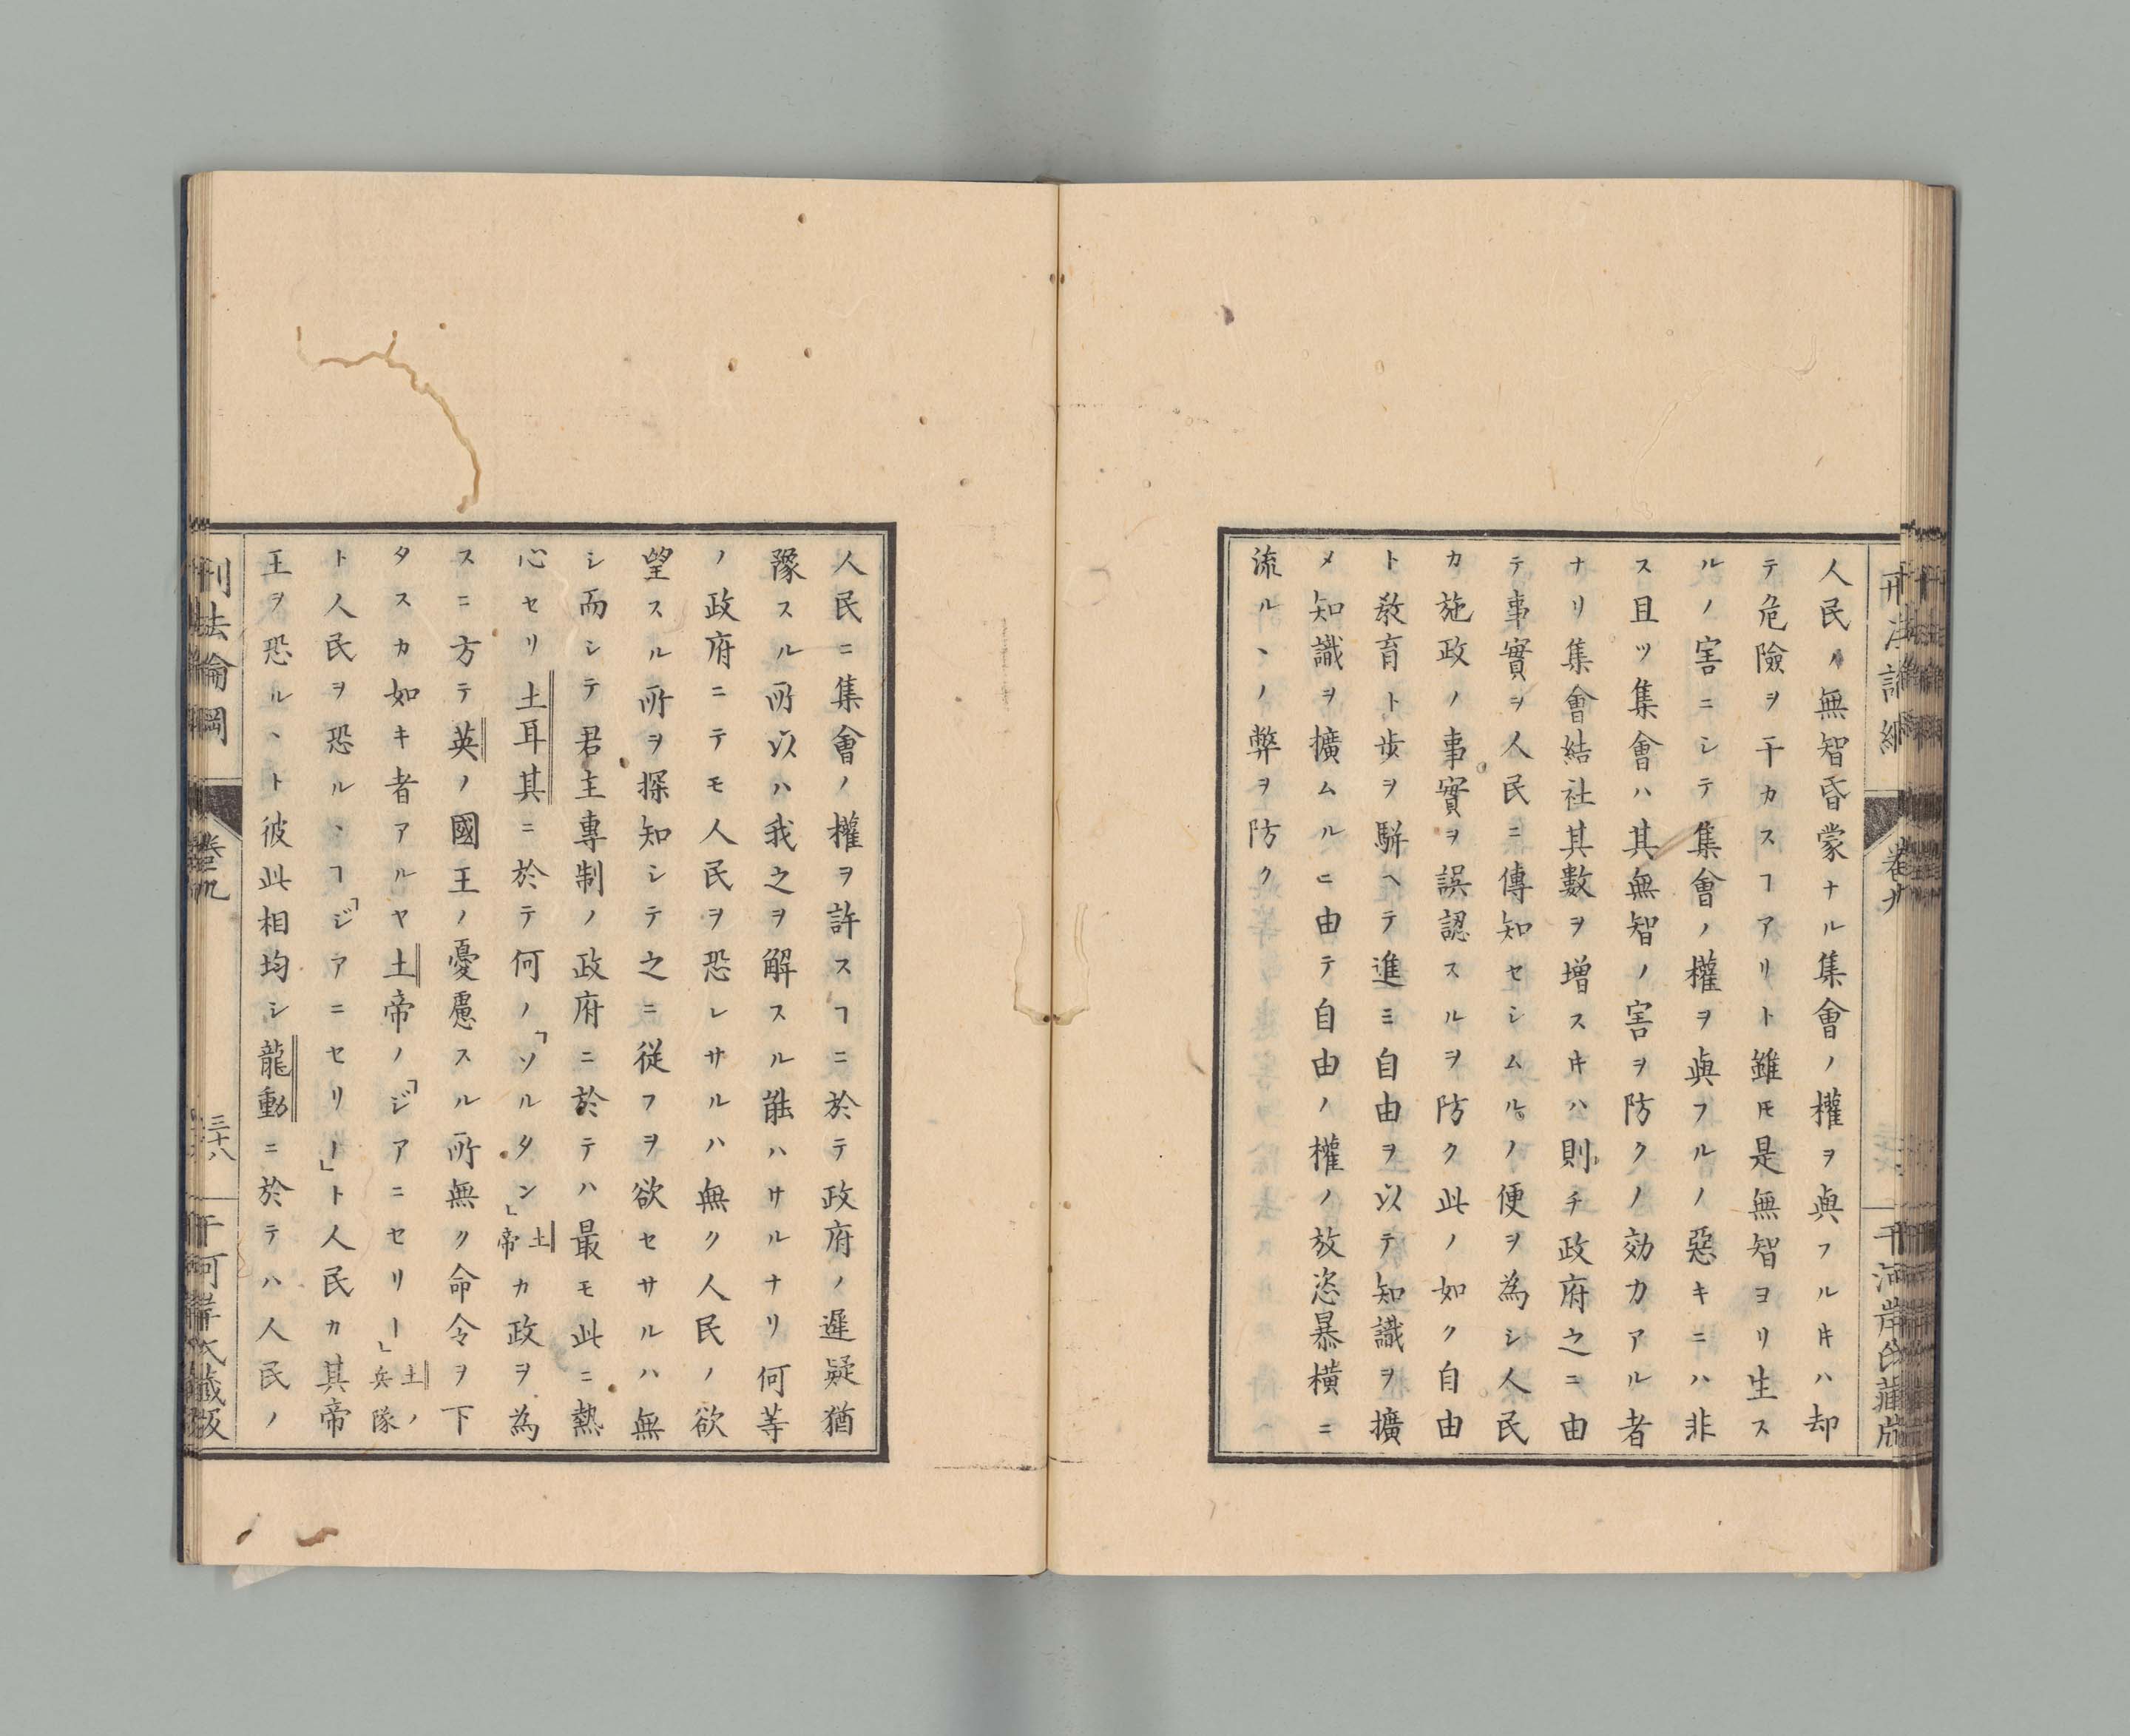 人民ノ無智昏蒙ナル集會ノ權ヲ與フルキハ却
テ危險ヲ干カスヿアリト雖𪜈是無智ヨリ生ス
ルノ害ニシテ集會ノ權ヲ與フルノ惡キニハ非
ス且ツ集會ハ其無智ノ害ヲ防クノ効力アル者
ナリ集會結社其數ヲ增スキハ則チ政府之ニ由
テ事實ヲ人民ニ傳知セシムルノ便ヲ為シ人民
カ施政ノ事實ヲ誤認スルヲ防ク此ノ如ク自由
ト敎育ト歩ヲ騈ヘテ進ミ自由ヲ以テ知識ヲ擴
メ知識ヲ擴ムルニ由テ自由ノ權ノ放恣暴横ニ
流ルヽノ弊ヲ防ク
卷九
人民ニ集會ノ權ヲ許スヿニ於テ政府ノ遲疑猶
豫スル所以ハ我之ヲ解スル能ハサルナリ何等
ノ政府ニテモ人民ヲ恐レサルハ無ク人民ノ欲
望スル所ヲ探知シテ之ニ從フヲ欲セサルハ無
シ而シテ君主專制ノ政府ニ於テハ最モ此ニ熱
心セリ土耳其ニ於テ何ノ「ソルタン」土帝カ政ヲ為
スニ方テ英ノ國王ノ憂慮スル所無ク命令ヲ下
タスカ如キ者アルヤ土帝ノ「ジアニセリー」土ノ兵隊
ト人民ヲ恐ルヽヿ「ジアニセリー」ト人民カ其帝
王ヲ恐ルヽト彼此相均シ龍動ニ於テハ人民ノ
刑法論綱
卷九
三十八
千河岸氏藏版